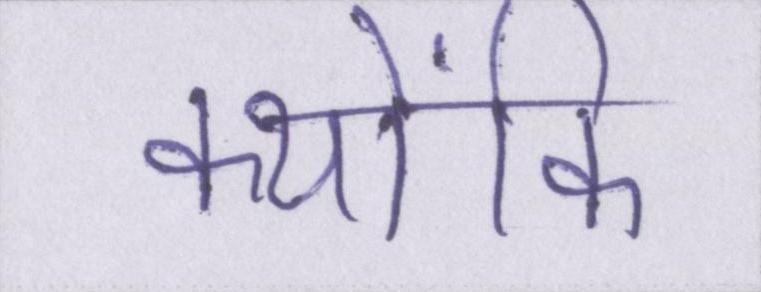 क्योंकि